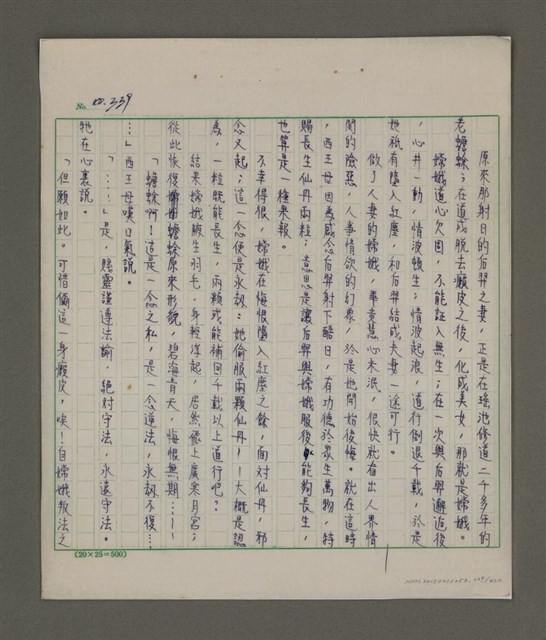 No. 22.339
原來那射日的后羿之妻，正是在瑤池修道二千多年的
老蟾蜍；在道成脫去癩皮之後，化成美女，那就是嫦娥。
嫦娥道心欠固，不能証入無生；在一次與后羿邂逅後
，心井一動，情波頓生；情波起浪，道行倒退千載，於是
她祇有墮入紅塵，和后羿結成夫妻一途可行。
做了人妻的嫦娥，畢竟慧心未泯，很快就看出人界情
間的險惡，人事情欲的幻景，於是她開始後悔。就在這時
，西王母因為感念后羿射下酷日，有功德於眾生萬物，特
賜長生仙丹兩粒；意思是讓后羿與嫦娥服後能夠長生，
也算是一種果報。
不幸得很，嫦娥在悔恨墮入紅塵之餘，面對仙丹，邪
念又起；這一念便是永劫：她偷服兩顆仙丹－－大概是認
為，一粒既能長生，兩顆或能補回千載以上道行吧？
結果嫦娥腋生羽毛，身輕浮起，居然飛上廣寒月宮；
從此恢復蟾蜍原來形貌，碧海青天，悔恨無期……－－
「蟾蜍啊！這是一念之私，是一念違法，永劫不復…
…」西王母嘆口氣說。
「……」是，賭靈謹遵法諭，絕對守法，永遠守法。
牠在心裏說。
「但願如此。可惜偏這一身癩皮，唉！自嫦娥叛法之
(20×25=500)